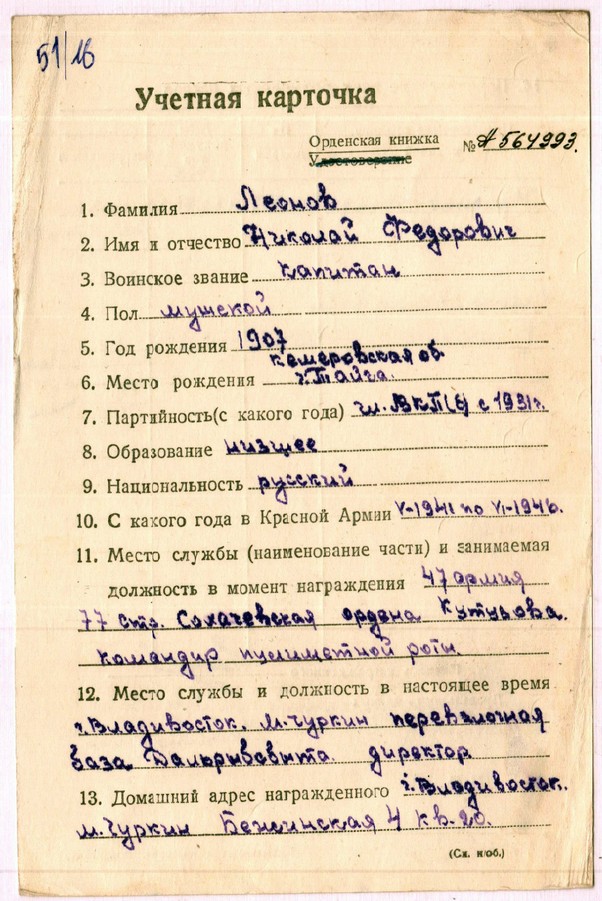 51/16
Учетная карточка
Орденская книжка
Удостоверение
№ А 564993.
1. Фамилия Леонов
2. Имя и отчество Николай Федорович
3. Воинское звание капитан
4. Пол мужской
5. Год рождения 1907
кемеровская об.
6. Место рождения г. Тайга.
7. Партийность(с какого года) чл. ВКП(б) с 1931 г.
8. Образование низшее
9. Национальность русский
10. С какого года в Красной Армии V-1941 по VI-1946.
11. Место службы (наименование части) и занимаемая
должность в момент награждения 47 армия
77 стр. Сохачевская ордена Кутузова.
командир пулиметной роты
12. Место службы и должность в настоящее время
г. Владивосток. м. Чуркин перевалочная
база Дальрыбсбыта. директор
13. Домашний адрес награжденного г. Владивосток.
м. Чуркин 4 кв. 20.
(См. н/об.)